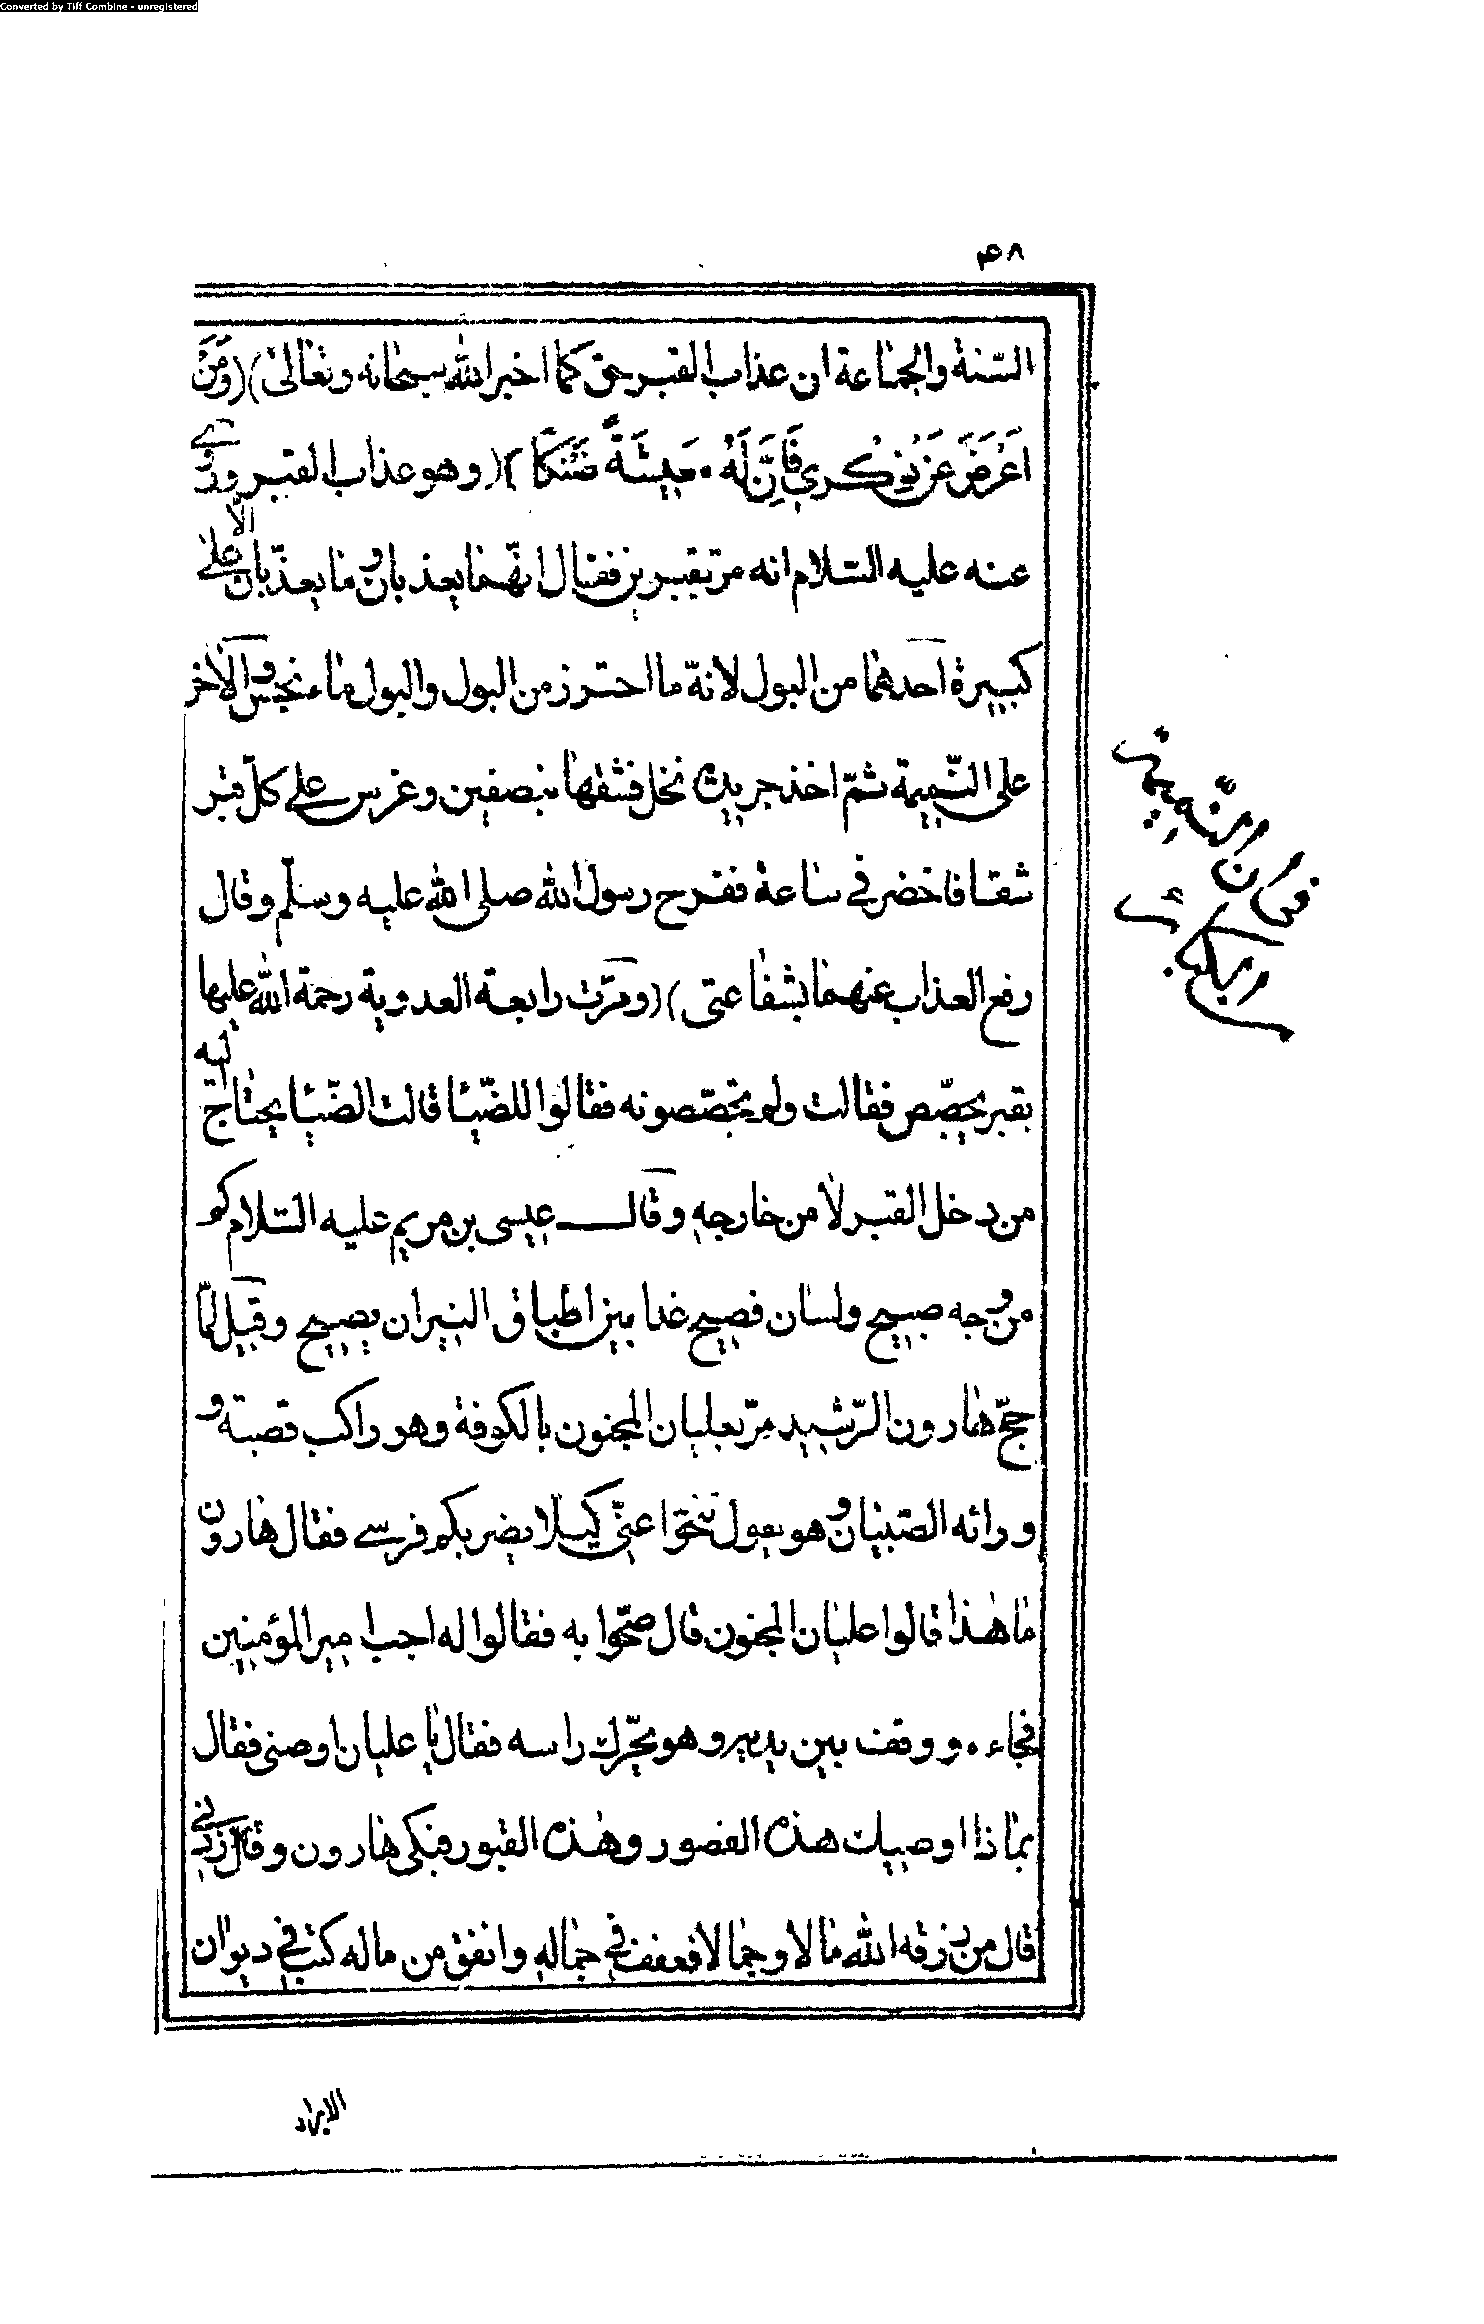 Converted by Tiff Combine - unregistered
٤٨
السّنة والجماعة ان عذاب القبر حق كما اخبر الله سبحانه وتعالى) (وَمَنْ
اَعْرَضَ عَنْ ذِكْرِي فَاِنَّ لَهُ مَعِيشَةً ضَنْكًا )( وهو عذاب القبر وروى
عنه عليه السّلام انه مرّ بقبرين فقال انّهما يعذبان وما يعذّبان الّا على
كبيرة احدهما من البول لانّه ما احترز من البول والبول ماء نجس والآخر
على النّميمة ثمّ اخذ جريدة نخل فشقها بنصفين وغرس على كلّ قبر
شقا فاخضر في ساعة ففرح رسول الله صلى الله عليه وسلّم وقال
رفع العذاب عنهما بشفاعتى )( ومرّت رابعة العدوية رحمة الله عليها
بقبر يجصّص فقالت ولم يجصّصونه فقالوا للضّيا قالت الضّيا يحتاج اليه
من دخل القبر لا من خارجه وقال عيسى بن مريم عليه السّلام كم
من وجه صبيح ولسان فصيح غدا بين اطباق النيران يصيح وقيل لمّا
حجّ هارون الرّشيد مرّ بعليان المجنون بالكوفة وهو راكب قصبته و
ورائه الصّبيان وهو يقول تنحّوا عنّي كيلا يضربكم فرسي فقال هارون
ما هذا قالوا عليان المجنون قال صحّوا به فقالوا له اجب امير المؤمنين
فجاءه ووقف بين يديه وهو يحرّك راسه فقال يا عليان اوصنى فقال
بماذا اوصيك هذه القصور وهذه القبور فبكى هارون وقال زدني
قال من رزقه الله مالا وجمالا فعفف في جماله وانفق من ماله كتب في ديوان
فى ان النّميمة
من الكبائر
الابرار